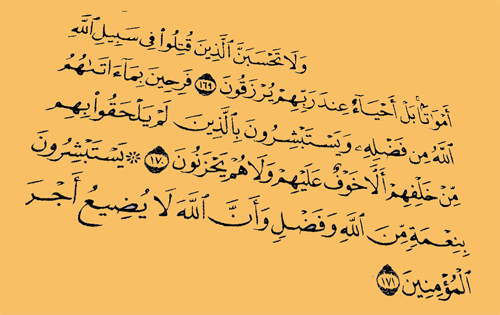 وَلَا تَحْسَبَنَّ ٱلَّذِينَ قُتِلُوا۟ فِى سَبِيلِ ٱللَّهِ
أَمْوَٰتًۢا بَلْ أَحْيَآءٌ عِندَ رَبِّهِمْ يُرْزَقُونَ ١٦٩ فَرِحِينَ بِمَآ ءَاتَىٰهُمُ
ٱللَّهُ مِن فَضْلِهِۦ وَيَسْتَبْشِرُونَ بِٱلَّذِينَ لَمْ يَلْحَقُوا۟ بِهِم
مِّنْ خَلْفِهِمْ أَلَّا خَوْفٌ عَلَيْهِمْ وَلَا هُمْ يَحْزَنُونَ ١٧٠ ۞ يَسْتَبْشِرُونَ
بِنِعْمَةٍ مِّنَ ٱللَّهِ وَفَضْلٍ وَأَنَّ ٱللَّهَ لَا يُضِيعُ أَجْرَ
ٱلْمُؤْمِنِينَ ١٧١